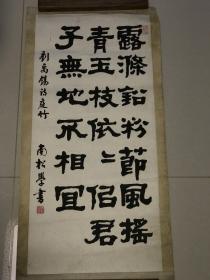 露滌鉛粉節風搖
青玉枝依〻似君
子無地不相宜
劉禹錫詩庭竹
南松學書